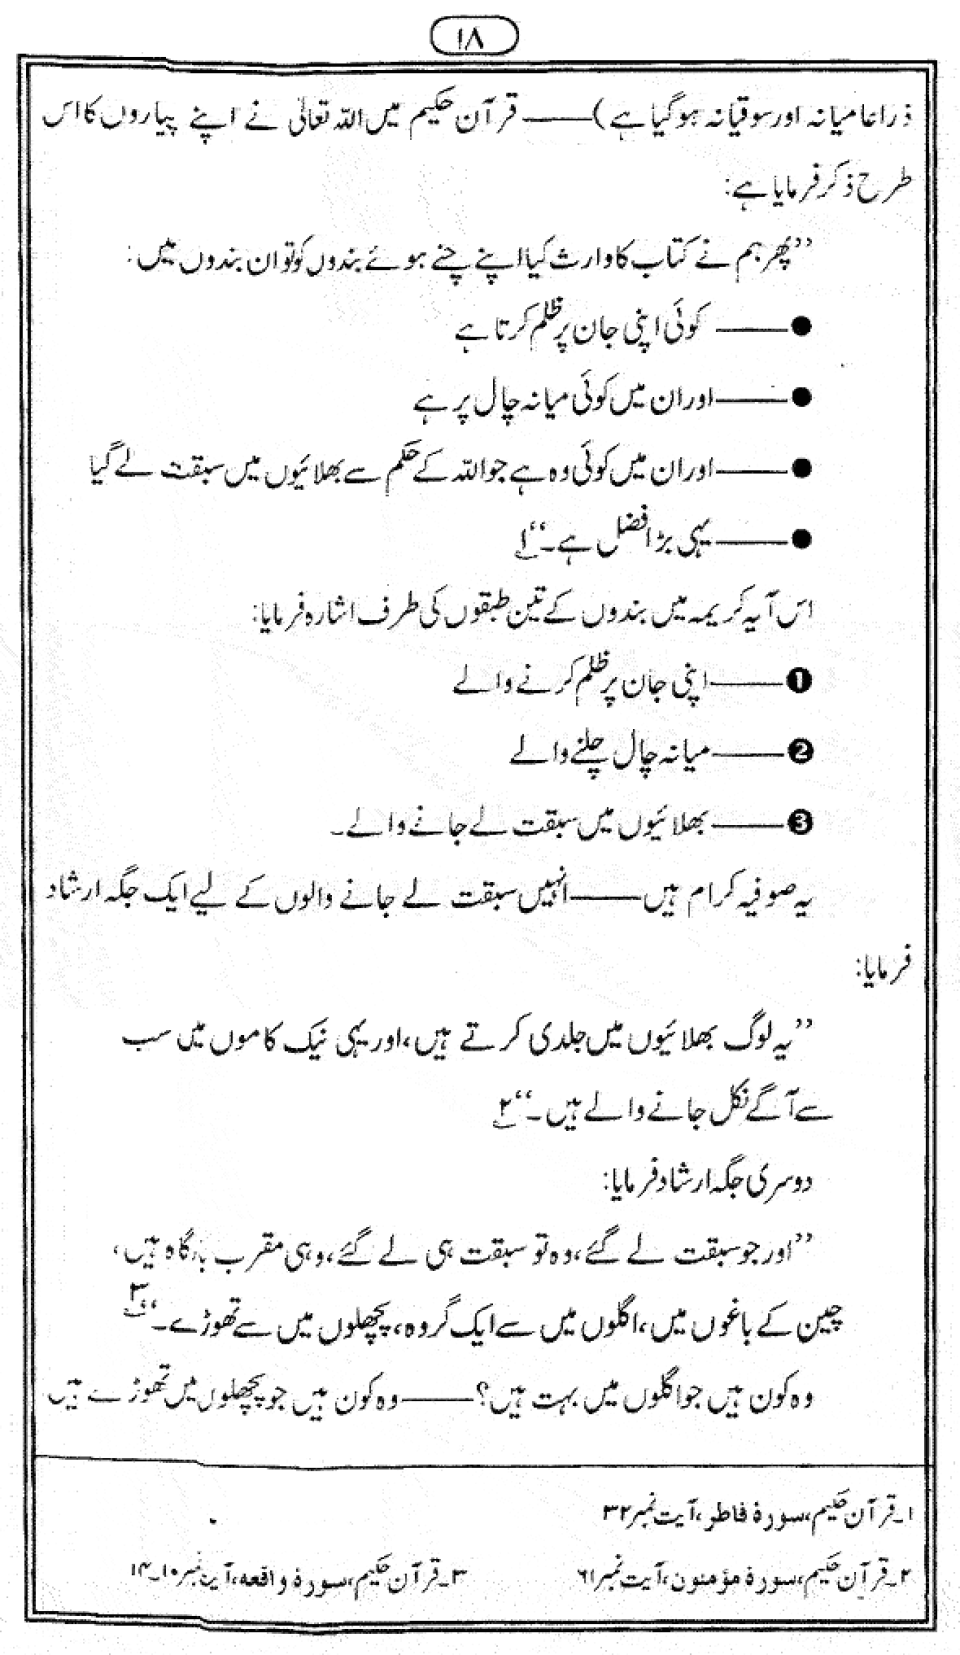 ۱۸
ذرا عامیانہ اور سوقیانہ ہوگیا ہے)——قرآن حکیم میں اللہ تعالیٰ نے اپنے پیاروں کا اس
طرح ذکر فرمایا ہے:
’’پھر ہم نے کتاب کا وارث کیا اپنے چنے ہوئے بندوں کو تو ان بندوں میں:
●——کوئی اپنی جان پر ظلم کرتا ہے
●——اور ان میں کوئی میانہ چال پر ہے
●——اور ان میں کوئی وہ ہے جو اللہ کے حکم سے بھلائیوں میں سبقت لے گیا
●——یہی بڑا فضل ہے۔‘‘۱
اس آیہ کریمہ میں بندوں کے تین طبقوں کی طرف اشارہ فرمایا:
❶——اپنی جان پر ظلم کرنے والے
❷——میانہ چال چلنے والے
❸——بھلائیوں میں سبقت لے جانے والے۔
یہ صوفیہ کرام ہیں——انہیں سبقت لے جانے والوں کے لیے ایک جگہ ارشاد
فرمایا:
’’یہ لوگ بھلائیوں میں جلدی کرتے ہیں، اور یہی نیک کاموں میں سب
سے آگے نکل جانے والے ہیں۔‘‘۲
دوسری جگہ ارشاد فرمایا:
’’اور جو سبقت لے گئے، وہ تو سبقت ہی لے گئے، وہی مقرب بارگاہ ہیں،
چین کے باغوں میں، اگلوں میں سے ایک گروہ، پچھلوں میں سے تھوڑے۔‘‘۳
وہ کون ہیں جو اگلوں میں بہت ہیں؟——وہ کون ہیں جو پچھلوں میں تھوڑے ہیں
۱۔قرآن حکیم، سورۂ فاطر، آیت نمبر ۳۲
۲۔قرآن حکیم، سورۂ مؤمنون، آیت نمبر ۶۱ ۳۔قرآن حکیم، سورۂ واقعہ، آیت نمبر ۱۰۔۱۴